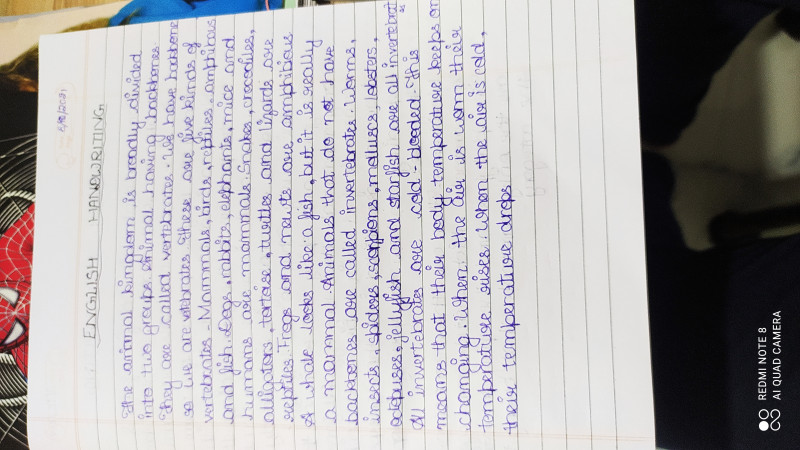 5/10/2021
ENGLISH HANDWRITING
The animal kingdom is broadly divided
into two groups Animal having backbones
They are called vertebrates. We have backbone
so we are vertebrates These are five kinds of
vertebrates - Mammals, birds, reptiles, amphibious
and fish. Dogs, rabbits, elephants, mice and
humans are mammals. Snakes, crocodiles,
alligators, tortoise, turtles and lizards are
reptiles. Frogs and newts are amphibious
A whale looks like a fish, but it is really
a mammal Animals that do not have
backbones are called invertebrates Worms,
insects, spiders, scorpions, molluses, lobsters,
octopuses, jellyfish and starfish are all invertebrat
es
All invertebrates are cold-blooded. This
means that their body temperature keeps on
changing. When the air is warm their
temperature rises. When the air is cold,
their temperature drops
REDMI NOTE 8
AI QUAD CAMERA